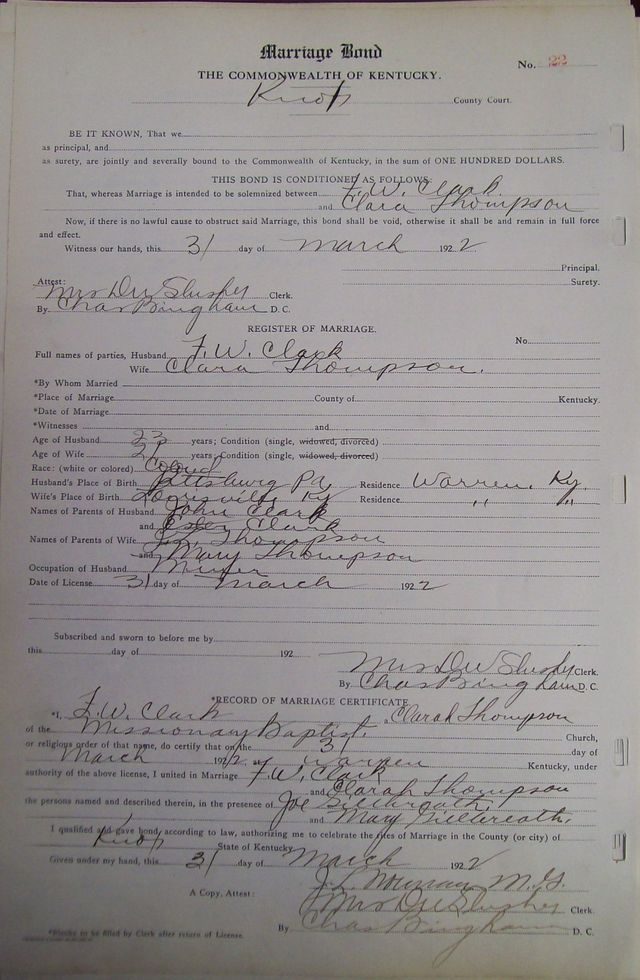 Marriage Bond
No. 22
THE COMMONWEALTH OF KENTUCKY.
Knox County Court.
BE IT KNOWN, That we
as principal, and
as surety, are jointly and severally bound to the Commonwealth of Kentucky, in the sum of ONE HUNDRED DOLLARS.
THIS BOND IS CONDITIONED AS FOLLOWS:
That, whereas Marriage is intended to be solemnized between F. W. Clark
and Clara Thompson
Now, if there is no lawful cause to obstruct said Marriage, this bond shall be void, otherwise it shall be and remain in full force
and effect.
Witness our hands, this 31 day of March 1922
Principal.
Surety.
Attest:
Mrs D W Slusher Clerk.
By Chas Bingham D. C.
REGISTER OF MARRIAGE.
No.
Full names of parties, Husband F. W. Clark
Wife Clara Thompson.
*By Whom Married
*Place of Marriage County of Kentucky.
*Date of Marriage
*Witnesses and
Age of Husband 23 years; Condition (single, widowed, divorced)
Age of Wife 21 years; Condition (single, widowed, divorced)
Race: (white or colored) Colored
Husband's Place of Birth Pittsburg Pa Residence Warren, Ky.
Wife's Place of Birth Louisville Ky Residence " "
Names of Parents of Husband John Clark
and Ester Clark
Names of Parents of Wife Thompson
and Mary Thompson
Occupation of Husband Miner
Date of License 31 day of March 1922
Subscribed and sworn to before me by
this day of 192
Mrs D W Slusher Clerk.
By Chas Bingham D. C.
*RECORD OF MARRIAGE CERTIFICATE
*I, F. W. Clark a Clarah Thompson
of the Missionary Baptist. Church,
or religious order of that name, do certify that on the 31 day of
March 1922, at Warren Kentucky, under
authority of the above license, I united in Marriage F. W. Clark
and Clarah Thompson
the persons named and described therein, in the presence of Joe
and Mary
I qualified and gave bond, according to law, authorizing me to celebrate the rites of Marriage in the County (or city) of
Knox State of Kentucky.
Given under my hand, this 31 day of March 1922
J. L. M. G.
A Copy, Attest: Mrs D W Slusher Clerk.
By Chas Bingham D. C.
*Blanks to be filled by Clerk after return of License.